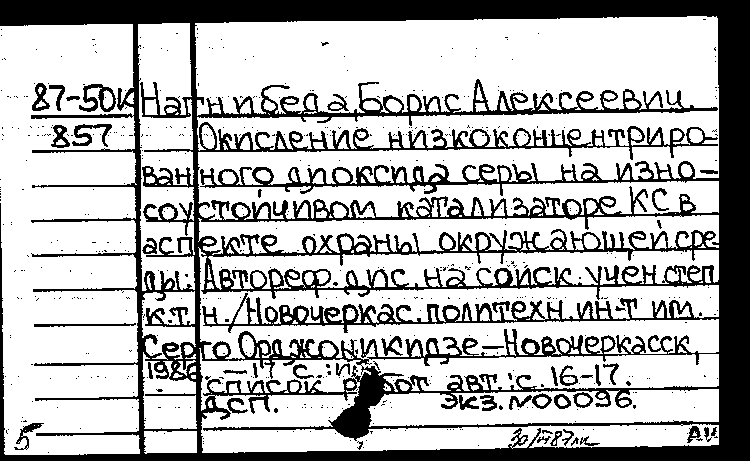 87-50К Нагнибеда, Борис Алексеевич.
857 Окисление низкоконцентриро-
ванного диоксида серы на изно-
соустойчивом катализаторе КС в
аспекте охраны окружающей сре
ды: Автореф. дис. на соиск. учен степ
к.т.н./Новочеркас. политехн. ин-т им.
Серго Орджоникидзе.–Новочеркасск,
1986. –17 с.:
список работ авт.: с. 16-17.
ДСП. Экз. №00096.
5